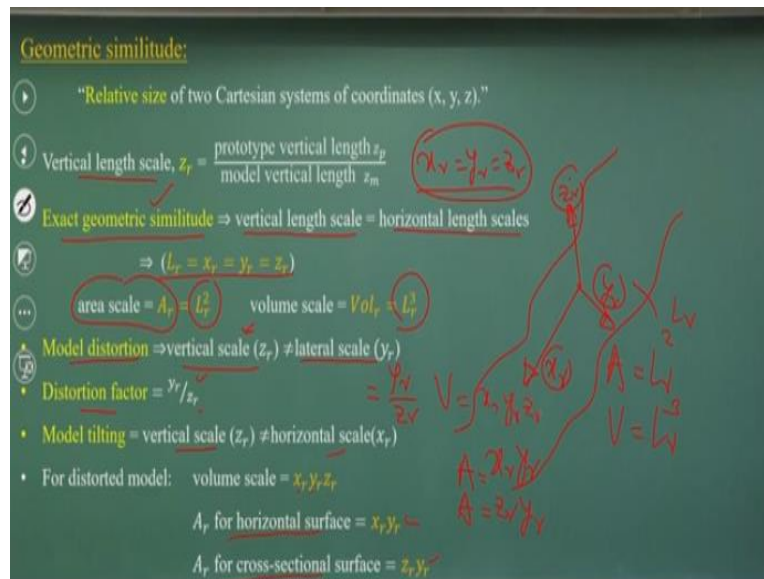 Geometric similitude:
"Relative size of two Cartesian systems of coordinates (x, y, z)."
Vertical length scale, zᵣ = prototype vertical length zₚ / model vertical length zₘ
xᵣ = yᵣ = zᵣ
Exact geometric similitude ⇒ vertical length scale = horizontal length scales
⇒ (Lᵣ = xᵣ = yᵣ = zᵣ)
area scale = Aᵣ = Lᵣ² volume scale = Volᵣ = Lᵣ³
• Model distortion ⇒vertical scale (zᵣ) ≠lateral scale (yᵣ)
• Distortion factor = yᵣ/zᵣ
• Model tilting = vertical scale (zᵣ) ≠horizontal scale(xᵣ)
• For distorted model: volume scale = xᵣyᵣzᵣ
Aᵣ for horizontal surface = xᵣyᵣ
Aᵣ for cross-sectional surface = zᵣyᵣ
= yᵣ/zᵣ
V = xᵣ yᵣ zᵣ
A = xᵣ yᵣ
A = zᵣ yᵣ
zᵣ
yᵣ
xᵣ
Lᵣ
A = Lᵣ²
V = Lᵣ³